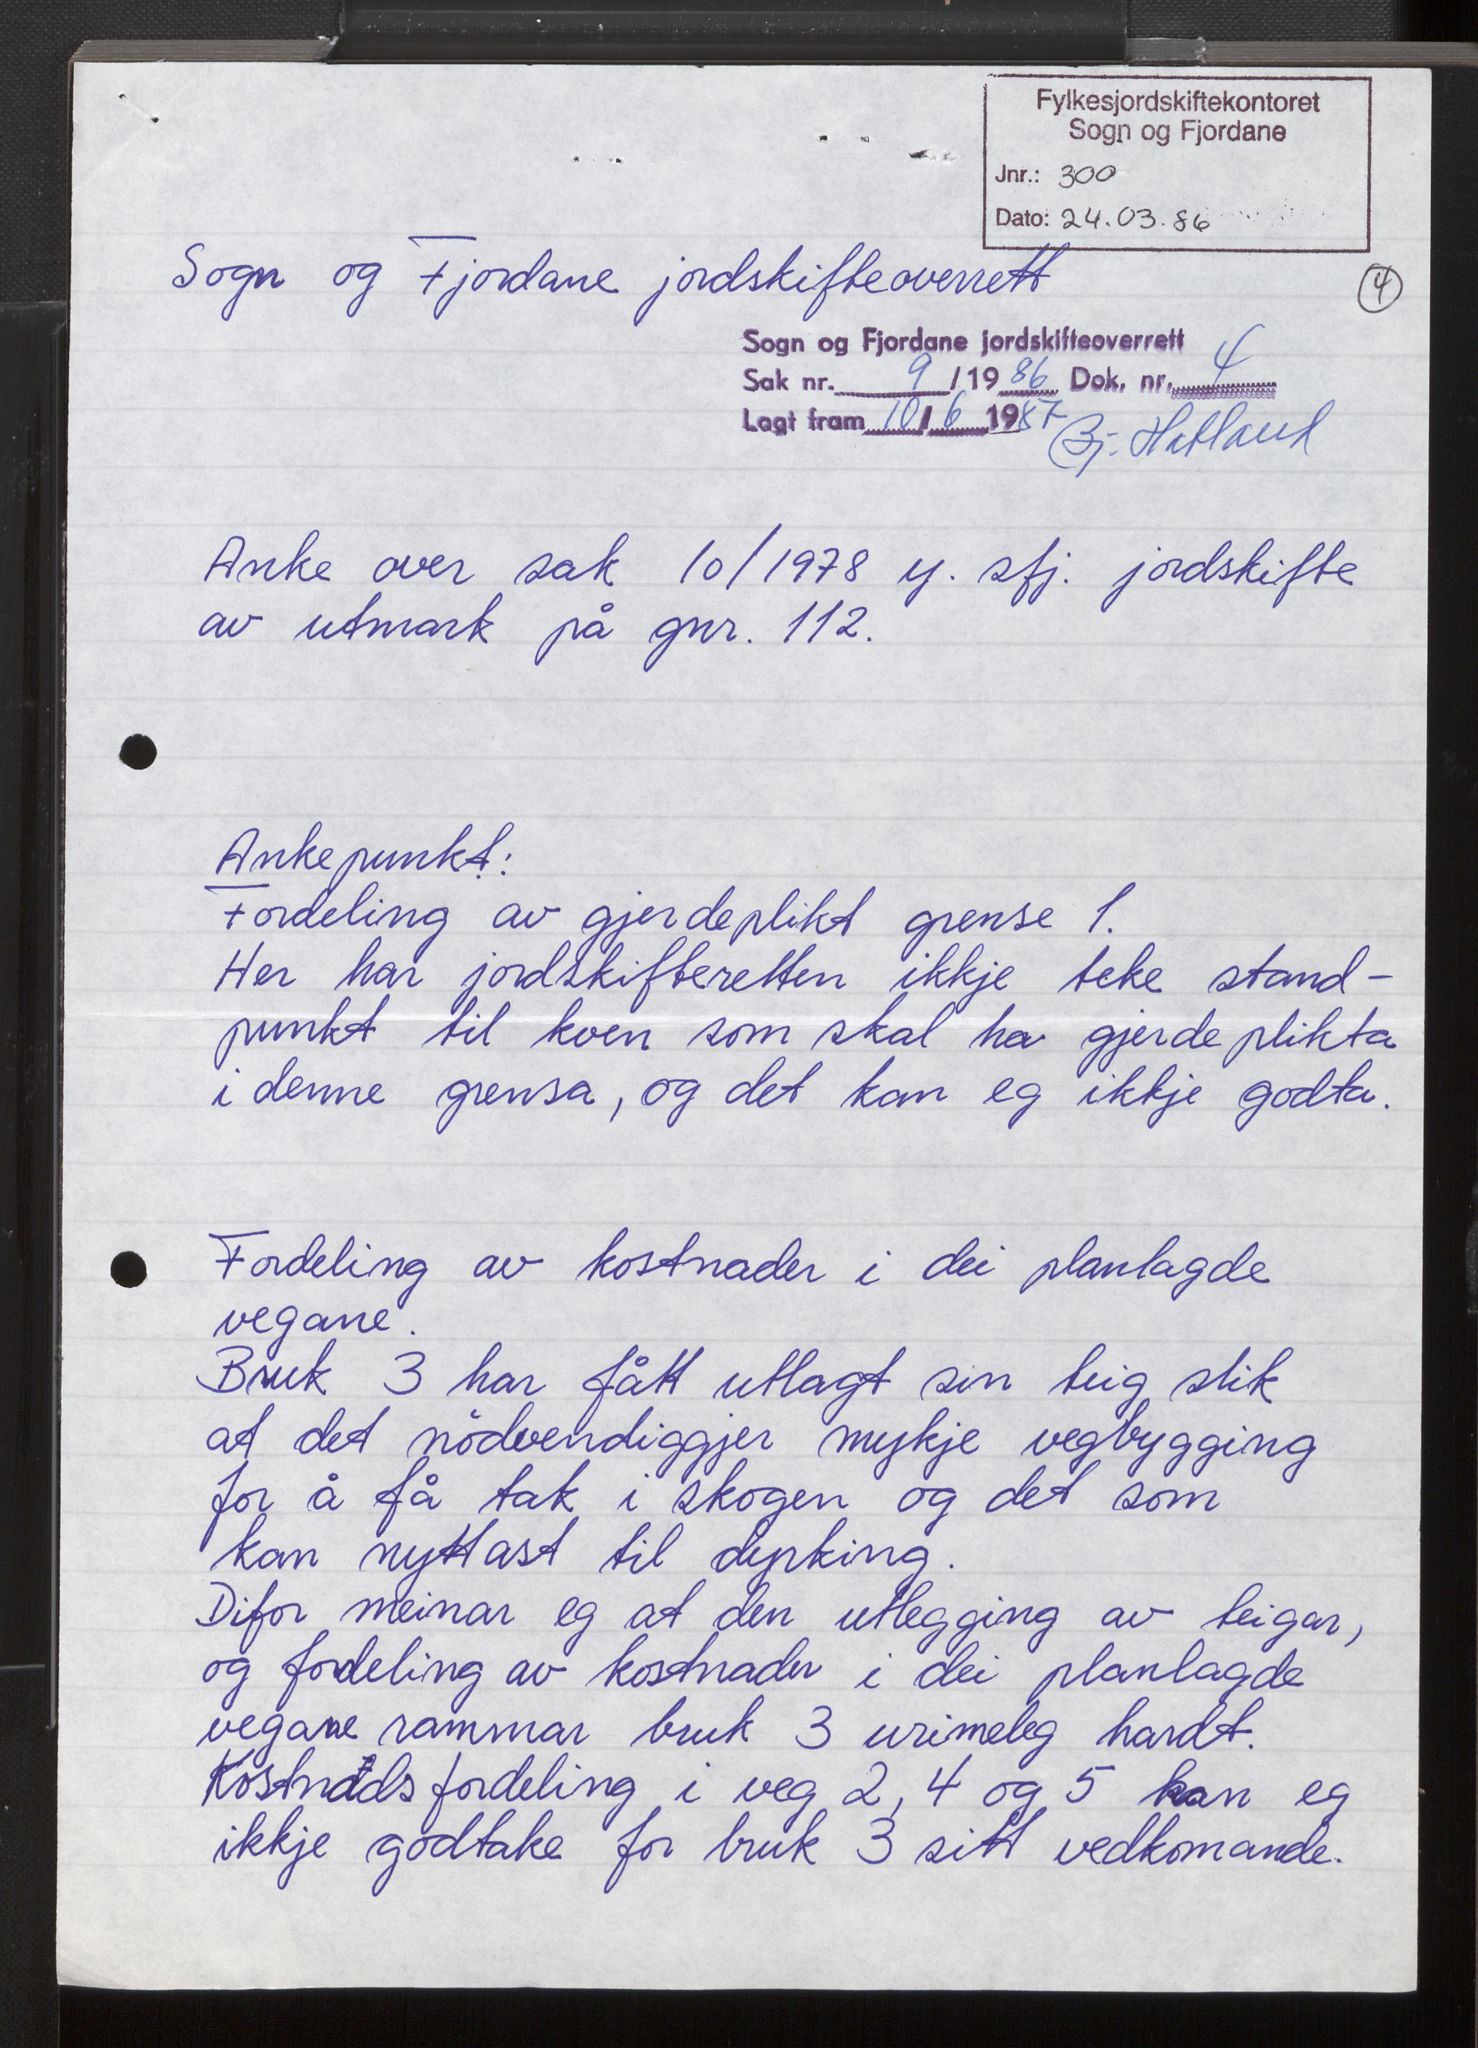 Fylkesjordskiftekontoret
Sogn og Fjordane
Jnr.: 300
Dato: 24.03.86
Sogn og Fjordane jordskifteoverrett
4
Sogn og Fjordane jordskifteoverrett
Sak nr. 9/1986 Dok. nr. 4
Lagt fram 10/6 1987
Bj. Hatland
Anke over sak 10/1978 y. sfj. jordskifte
av utmark på gnr. 112.
Ankepunkt:
Fordeling av gjerdeplikt grense 1.
Her har jordskifteretten ikkje teke stand-
punkt til kven som skal ha gjerdeplikta
i denne grensa, og det kan eg ikkje godta.
Fordeling av kostnader i dei planlagde
vegane.
Bruk 3 har fått utlagt sin teig slik
at det nödvendiggjer mykje vegbygging
for å få tak i skogen og det som
kan nyttast til dyrking.
Difor meinar eg at den utlegging av teigar,
og fordeling av kostnader i dei planlagde
vegane rammar bruk 3 urimeleg hardt.
Kostnadsfordeling i veg 2, 4 og 5 kan eg
ikkje godtake for bruk 3 sitt vedkomande.